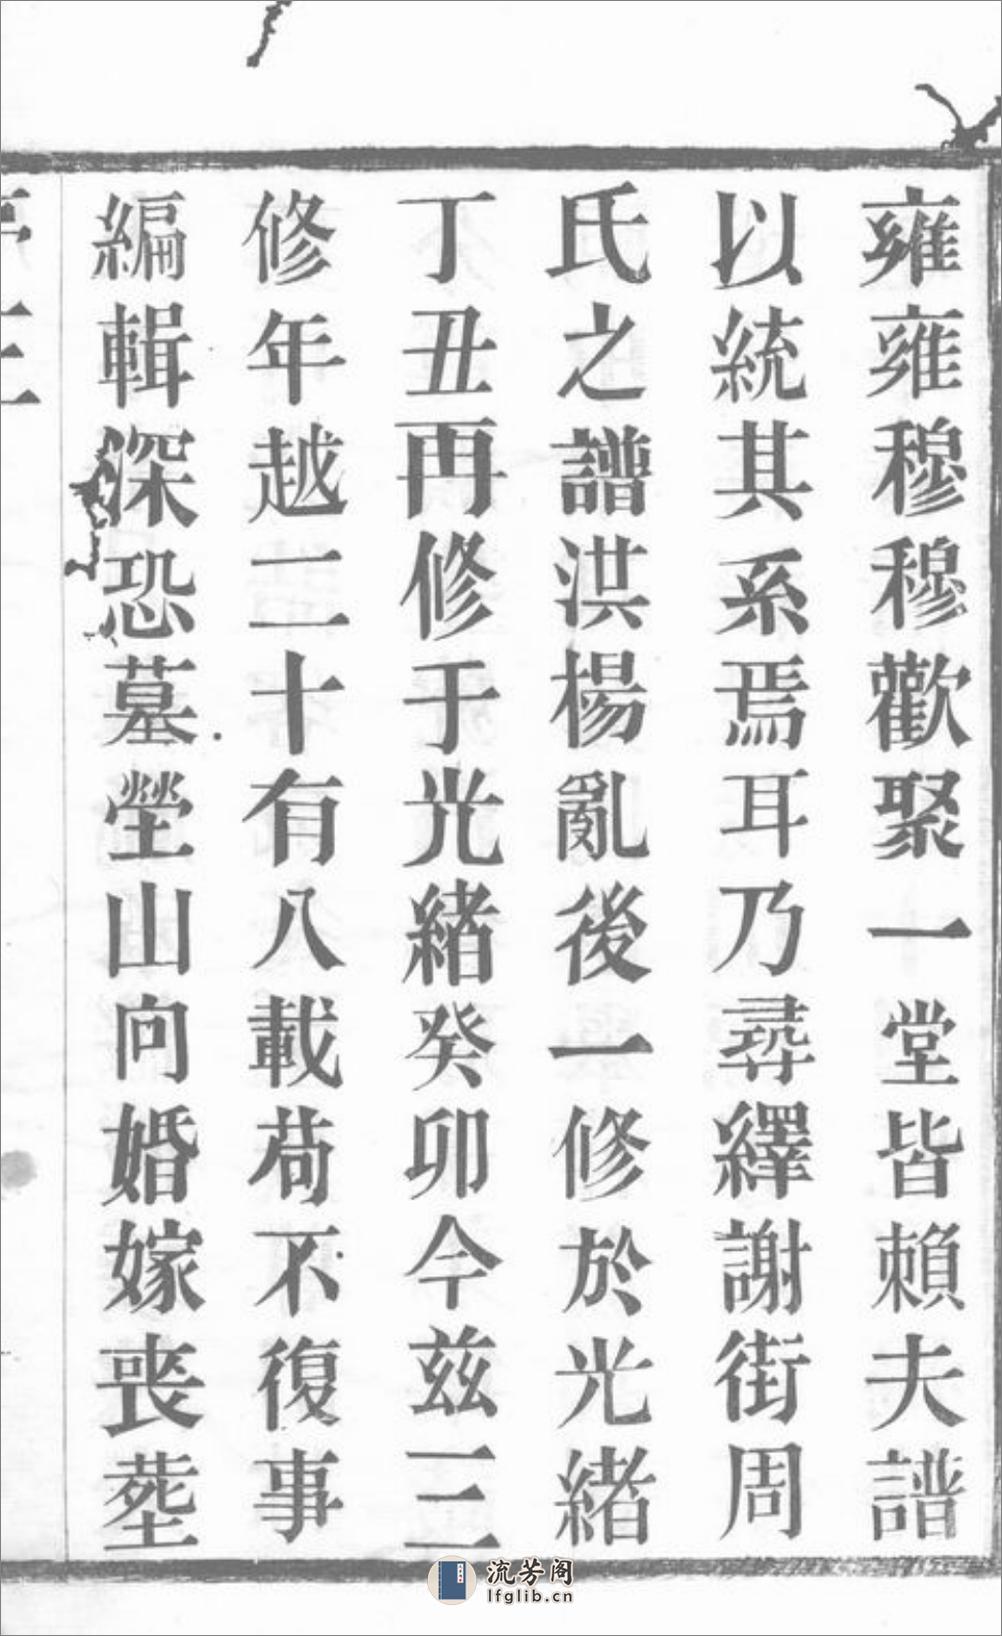 雍雍穆穆歡聚一堂皆賴夫譜
以統其系焉耳乃尋繹謝街周
氏之譜洪楊亂後一修於光緒
丁丑再修于光緒癸卯今茲三
修年越二十有八載苟不復事
編輯深恐墓塋山向婚嫁喪塟
流芳阁
lfglib.cn